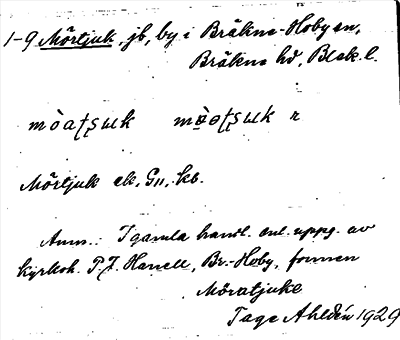 1-9 Mörtjuk, jb, by i Bräkne-Hoby sn,
Bräkne hd, Blek. l.
Mörtjuk ek, G11, kb.
Anm.: I gamla handl. enl. uppg. av
kyrkoh. P.J. Hanell, Br.-Hoby, formen
Möratjuke
Tage Ahldén 1929